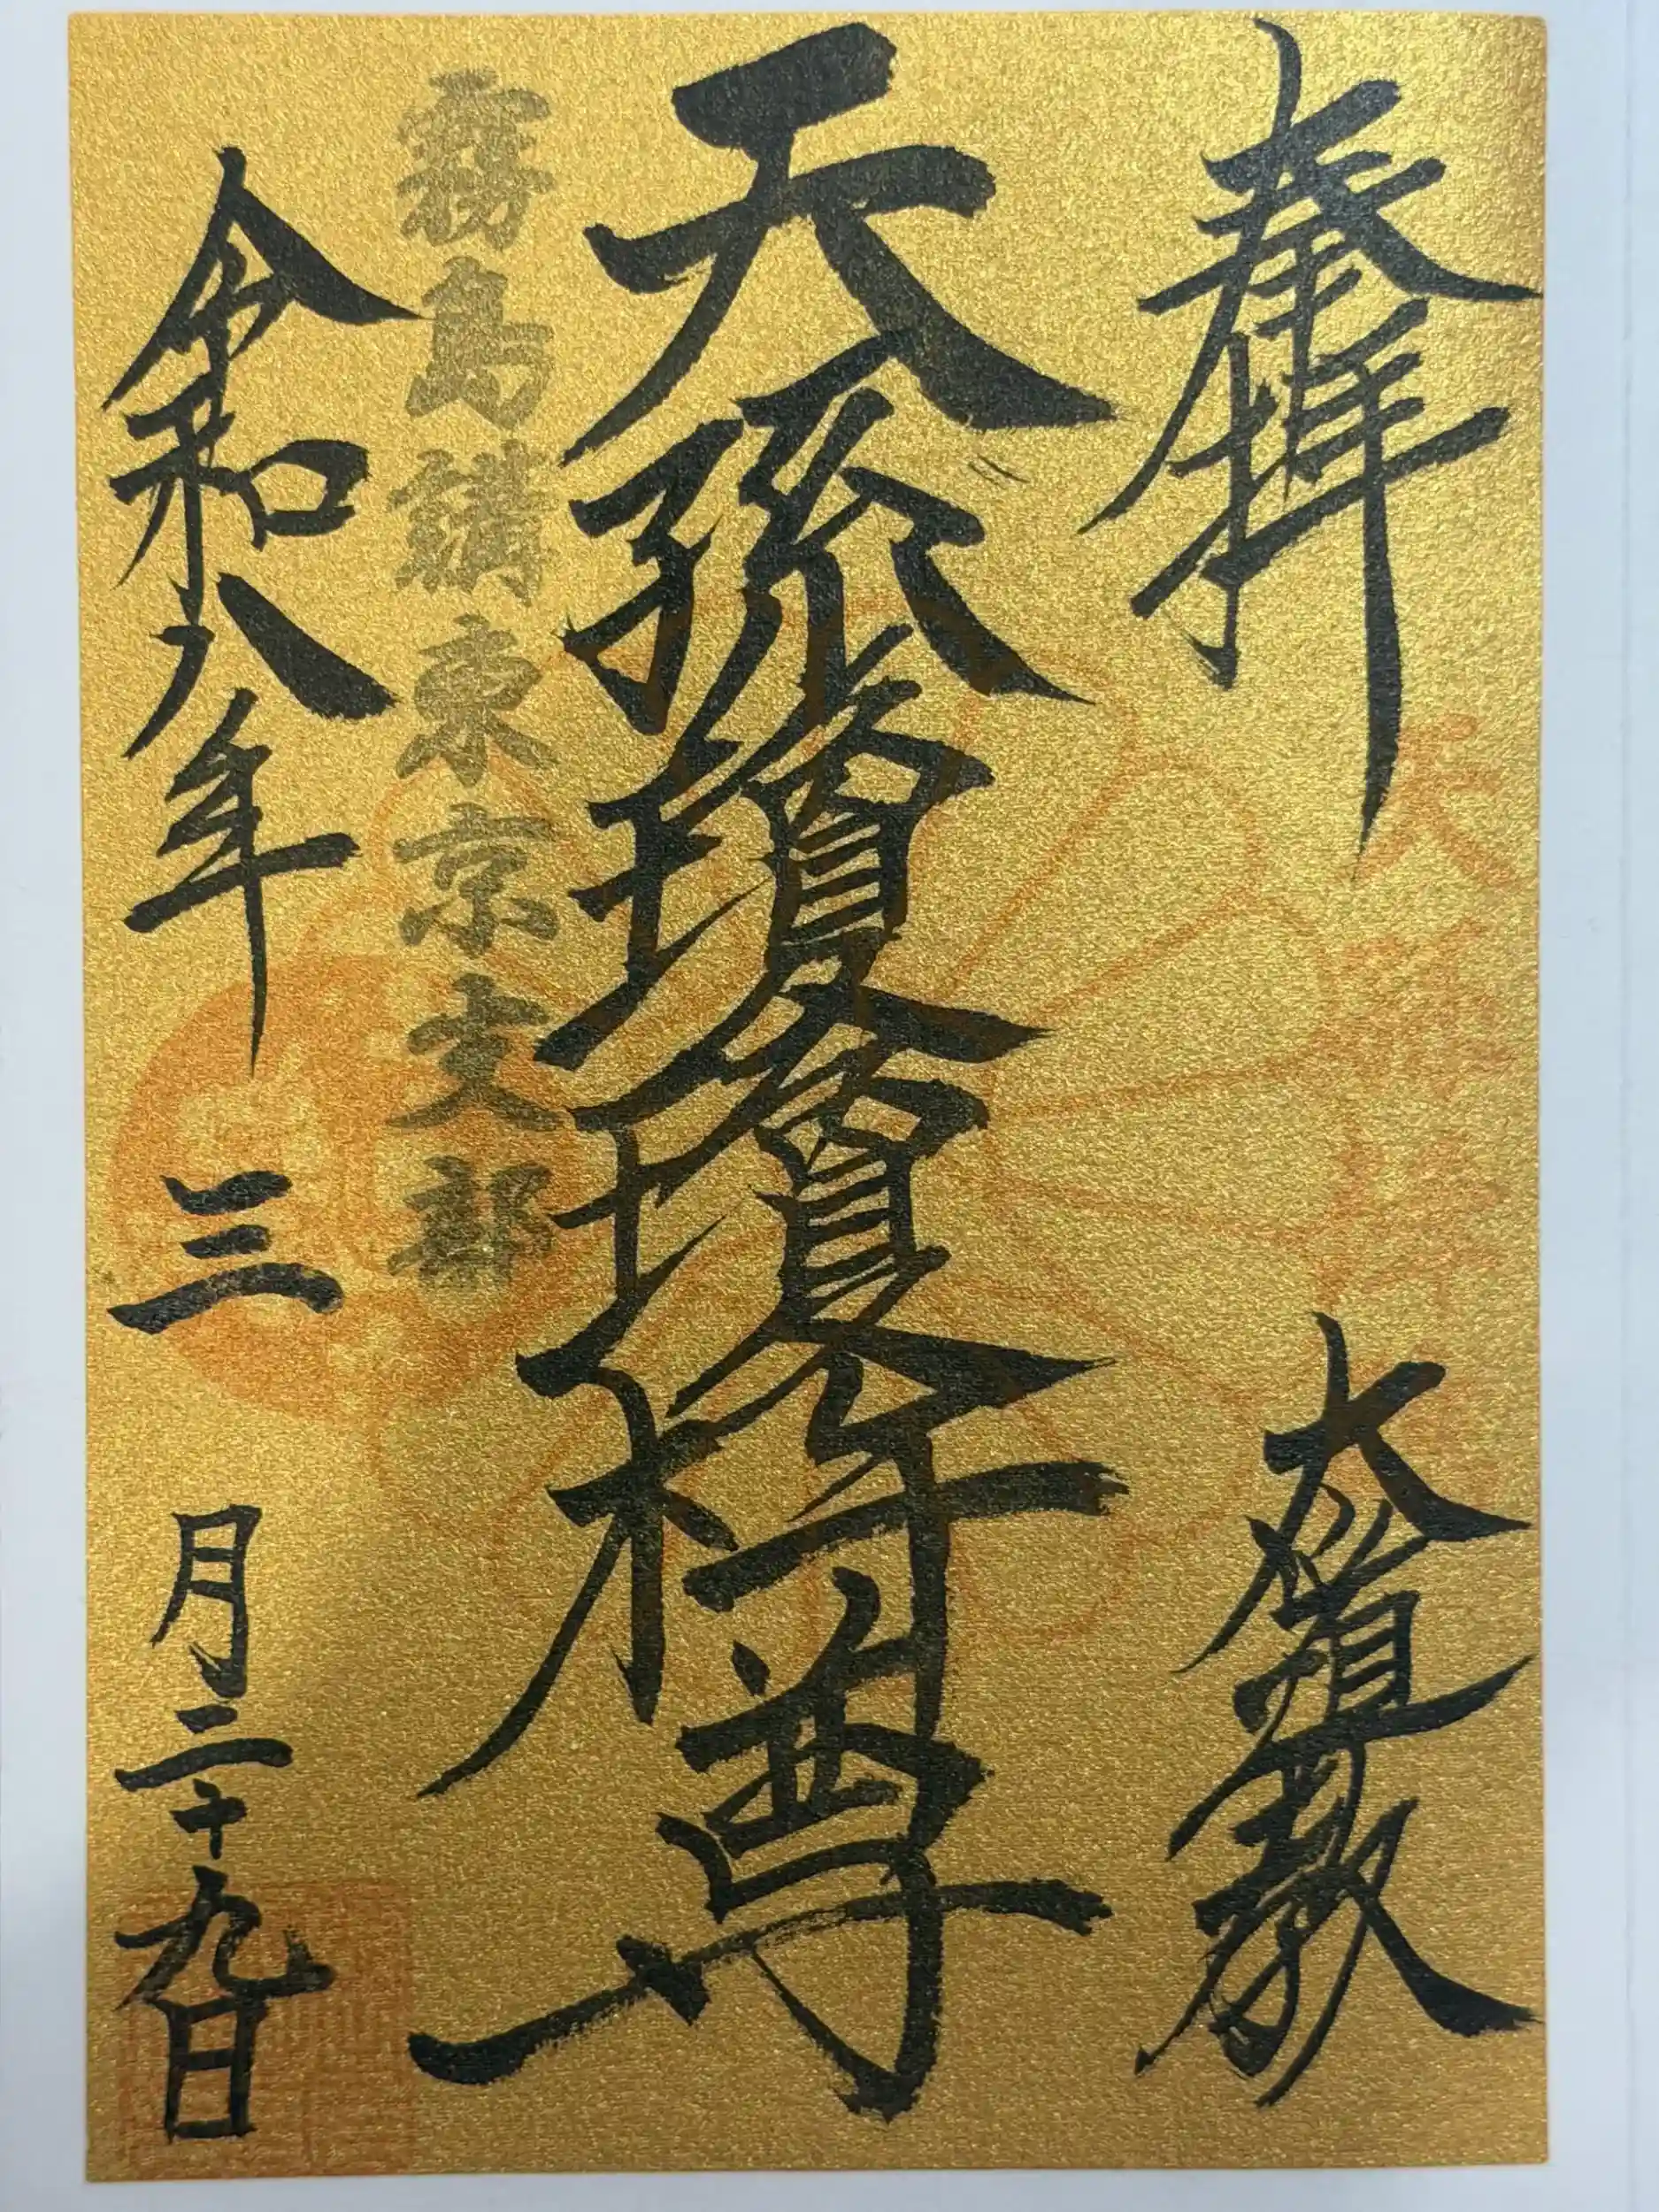 奉拝
天孫瓊瓊杵尊
霧島講東京支部
令和八年三月二十九日